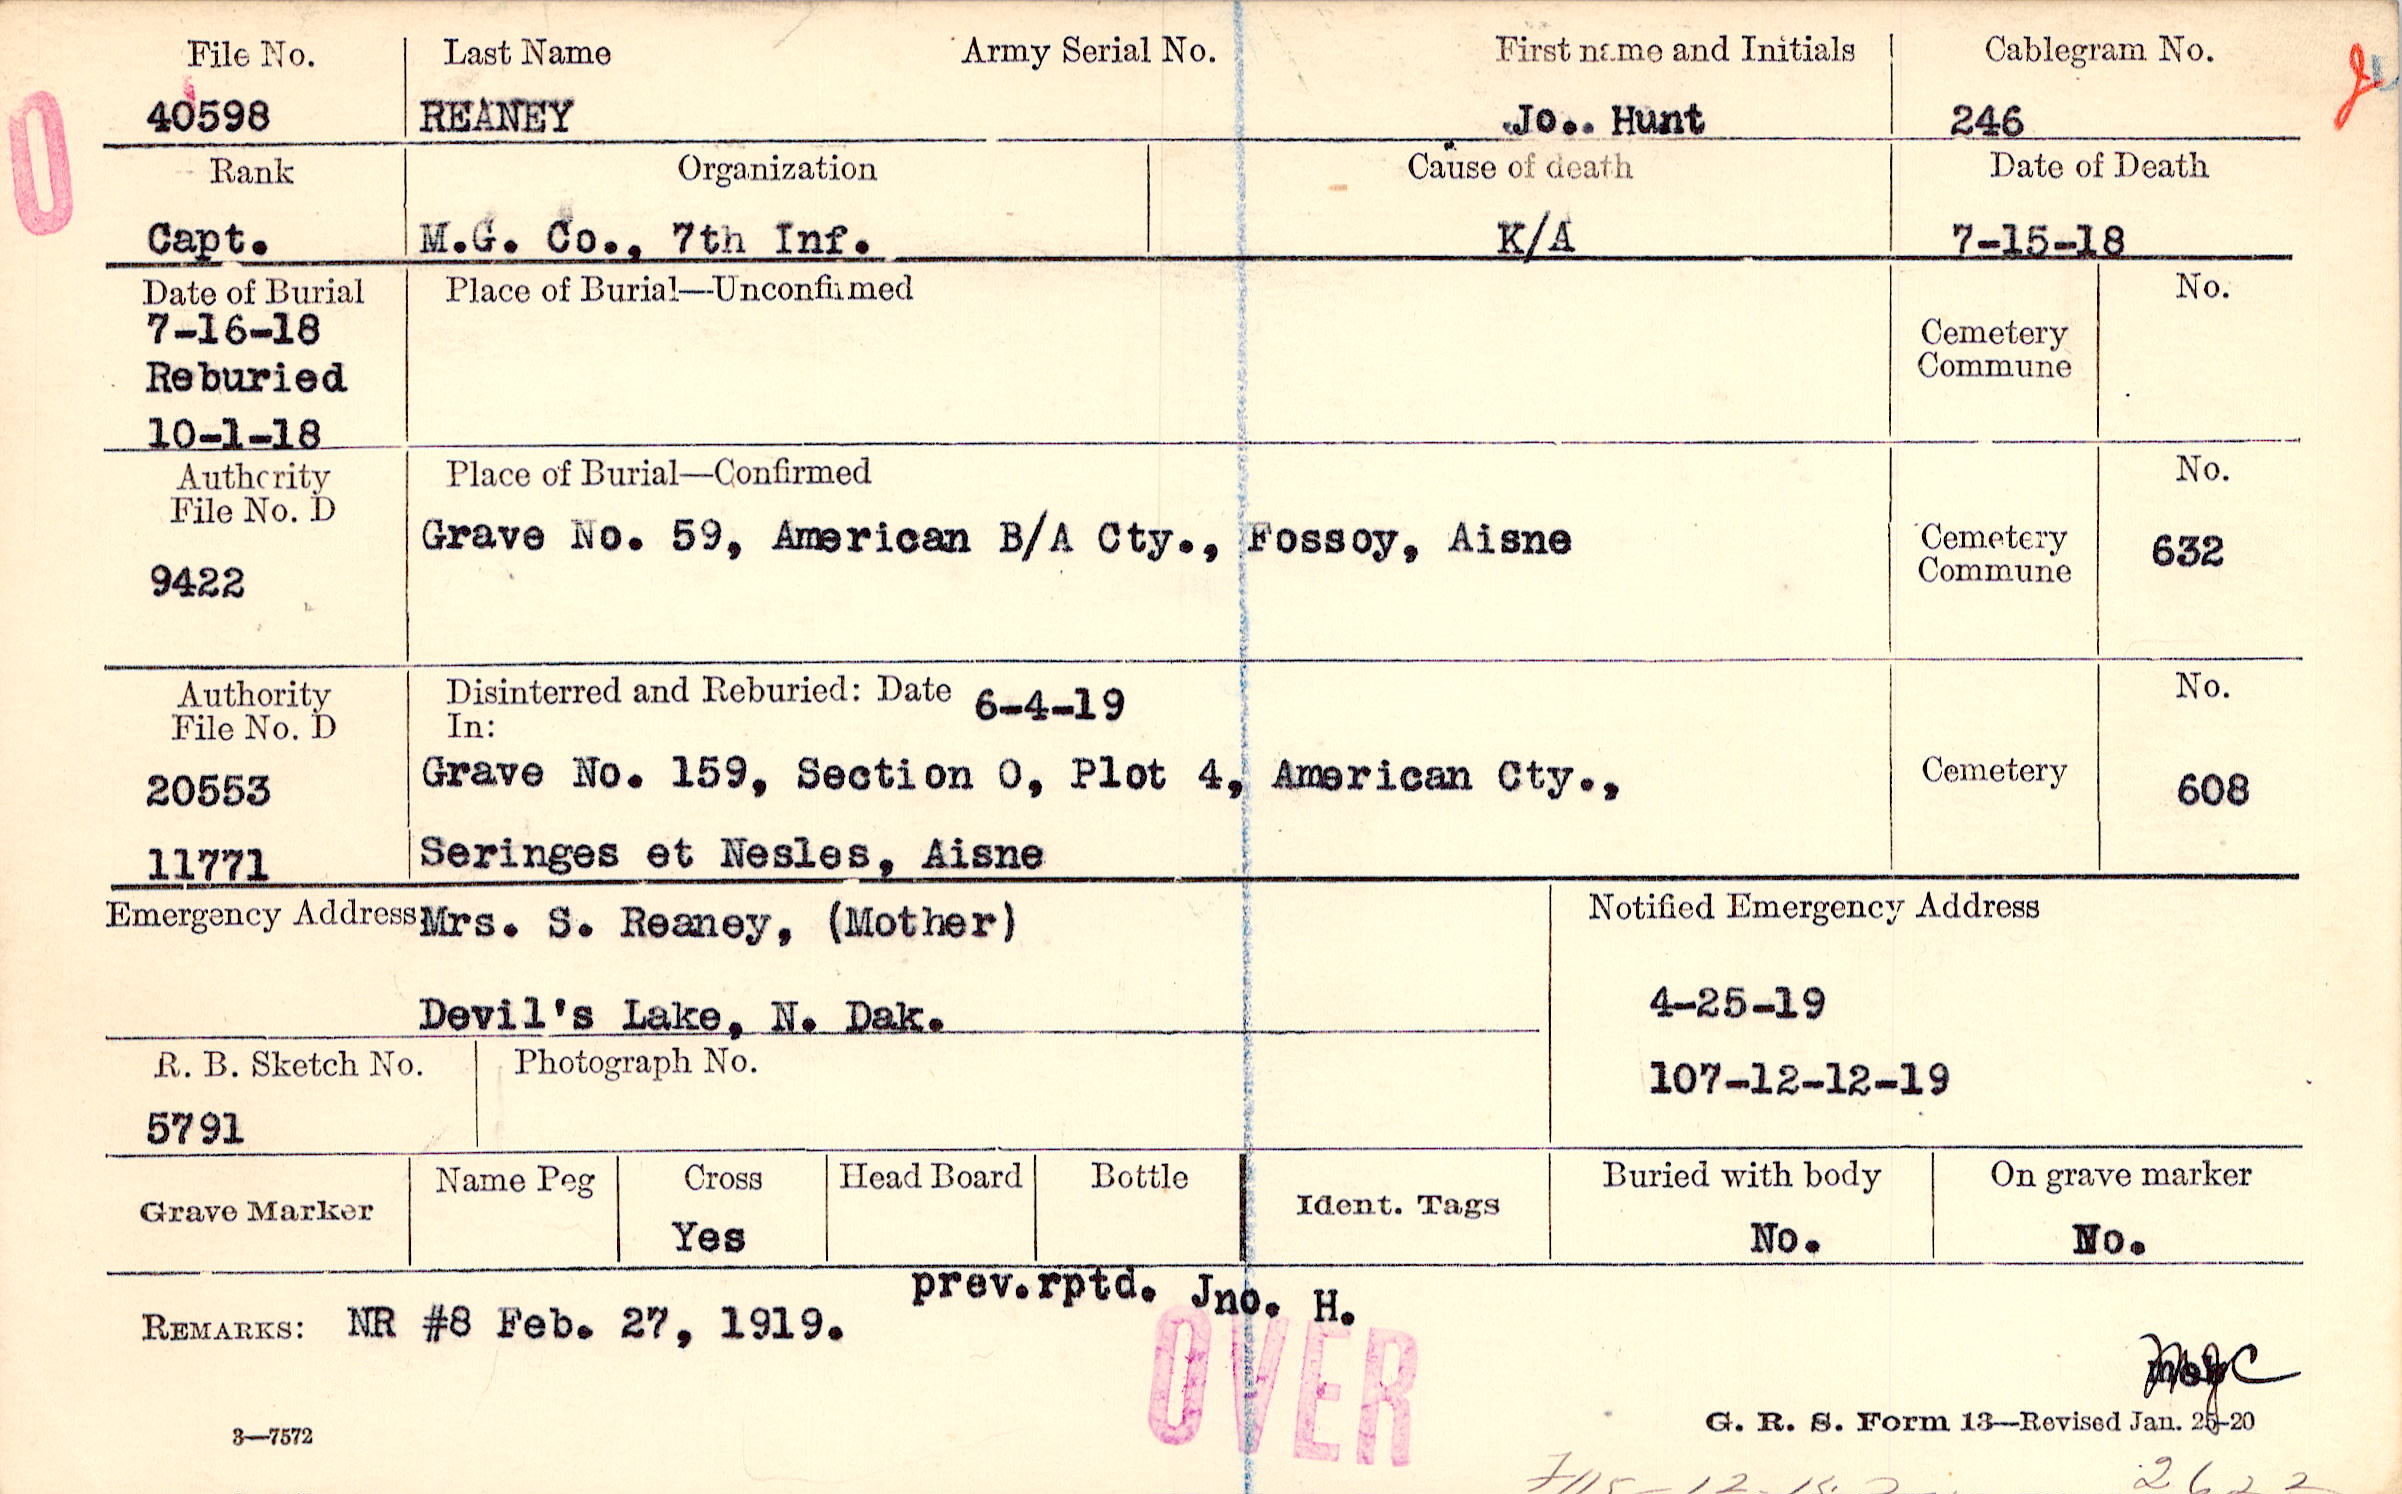 File No. Last Name Army Serial No. First name and Initials Cablegram No.
40598 REANEY Jo.. Hunt 246
Rank Organization Cause of death Date of Death
Capt. M.G. Co., 7th Inf. K/A 7-15-18
Date of Burial Place of Burial—Unconfirmed No.
7-16-18
Cemetery
Commune
Reburied
10-1-18
Authority Place of Burial—Confirmed No.
File No. D
Grave No. 59, American B/A Cty., Fossoy, Aisne
Cemetery
Commune
632
9422
Authority Disinterred and Reburied: Date 6-4-19 No.
File No. D In:
20553 Grave No. 159, Section O, Plot 4, American Cty., Cemetery 608
11771 Seringes et Nesles, Aisne
Emergency Address Mrs. S. Reaney, (Mother) Notified Emergency Address
Devil's Lake, N. Dak. 4-25-19
R. B. Sketch No. Photograph No. 107-12-12-19
5791
Grave Marker Name Peg Cross Head Board Bottle Ident. Tags Buried with body On grave marker
Yes No. No.
prev.rptd. Jno. H.
REMARKS: NR #8 Feb. 27, 1919.
OVER
G. R. S. Form 13—Revised Jan. 26-20
3—7572